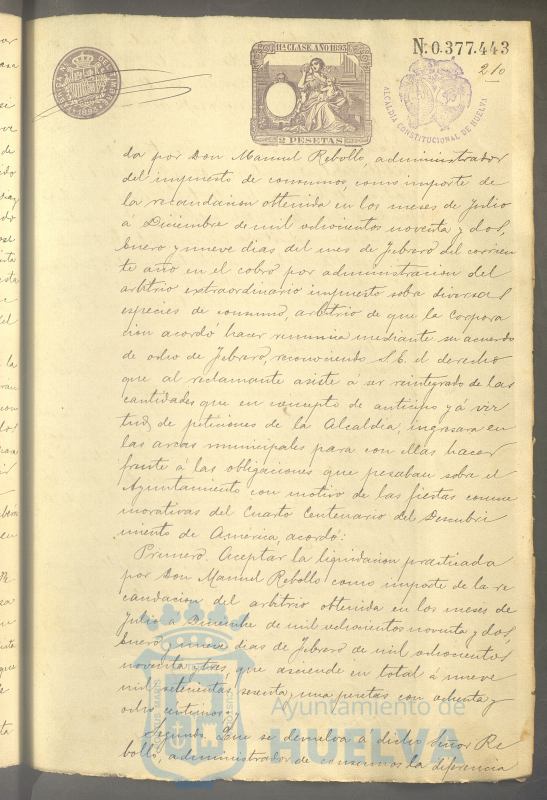 11ª CLASE. AÑO 1893
Nº 0.377.443
210
ALCALDIA CONSTITUCIONAL DE HUELVA
2 PESETAS
da por Don Manuel Rebollo, administrador
del impuesto de consumos, como importe de
la recaudacion obtenida en los meses de Julio
á Diciembre de mil ochocientos noventa y dos,
Enero y nueve dias del mes de Febrero del corrien
te año en el cobro por administracion del
arbitrio extraordinario impuesto sobre diversas
especies de consumo, arbitrio de que la Corpora
cion acordó hacer renuncia mediante su acuerdo
de ocho de Febrero, reconociendo S. E. el derecho
que al reclamante asiste á ser reintegrado de las
cantidades que en concepto de anticipo y á vir
tud de peticiones de la Alcaldia, ingresara en
las arcas municipales para con ellas hacer
frente á las obligaciones que pesaban sobre el
Ayuntamiento con motivo de las fiestas conme
morativas del Cuarto Centenario del Descubri
miento de America, acordó:
Primero. Aceptar la liquidacion practicada
por Don Manuel Rebollo como importe de la re
caudacion del arbitrio obtenida en los meses de
Julio a Diciembre de mil ochocientos noventa y dos,
Enero y nueve dias de Febrero de mil ochocientos
noventa y tres, que asciende en total á nueve
mil setecientas sesenta y una pesetas con ochenta y
ocho centimos.
Segundo. Que se devuelva a dicho Señor Re
bollo, administrador de consumos la diferencia
Ayuntamiento de
HUELVA